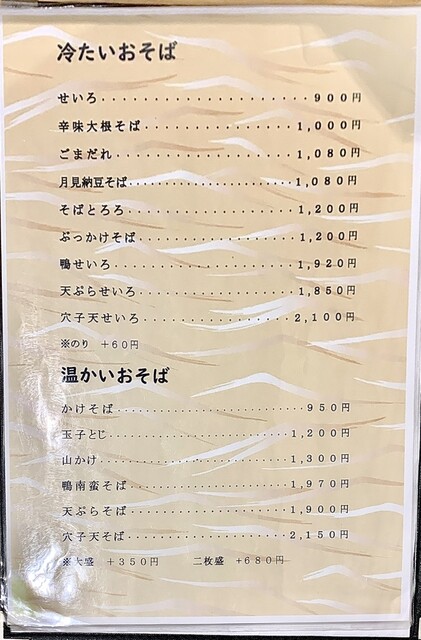 冷たいおそば
せいろ・・・・・・・・・・・・・・・・・・・・900円
辛味大根そば・・・・・・・・・・・・・・・1,000円
ごまだれ・・・・・・・・・・・・・・・・・・1,080円
月見納豆そば・・・・・・・・・・・・・・・1,080円
そばとろろ・・・・・・・・・・・・・・・・・1,200円
ぶっかけそば・・・・・・・・・・・・・・・1,200円
鴨せいろ・・・・・・・・・・・・・・・・・・1,920円
天ぷらせいろ・・・・・・・・・・・・・・・1,850円
穴子天せいろ・・・・・・・・・・・・・・・2,100円
※のり ＋60円
温かいおそば
かけそば・・・・・・・・・・・・・・・・・・950円
玉子とじ・・・・・・・・・・・・・・・・・・1,200円
山かけ・・・・・・・・・・・・・・・・・・・1,300円
鴨南蛮そば・・・・・・・・・・・・・・・・1,970円
天ぷらそば・・・・・・・・・・・・・・・・1,900円
穴子天そば・・・・・・・・・・・・・・・・2,150円
※大盛 ＋350円 二枚盛 ＋680円